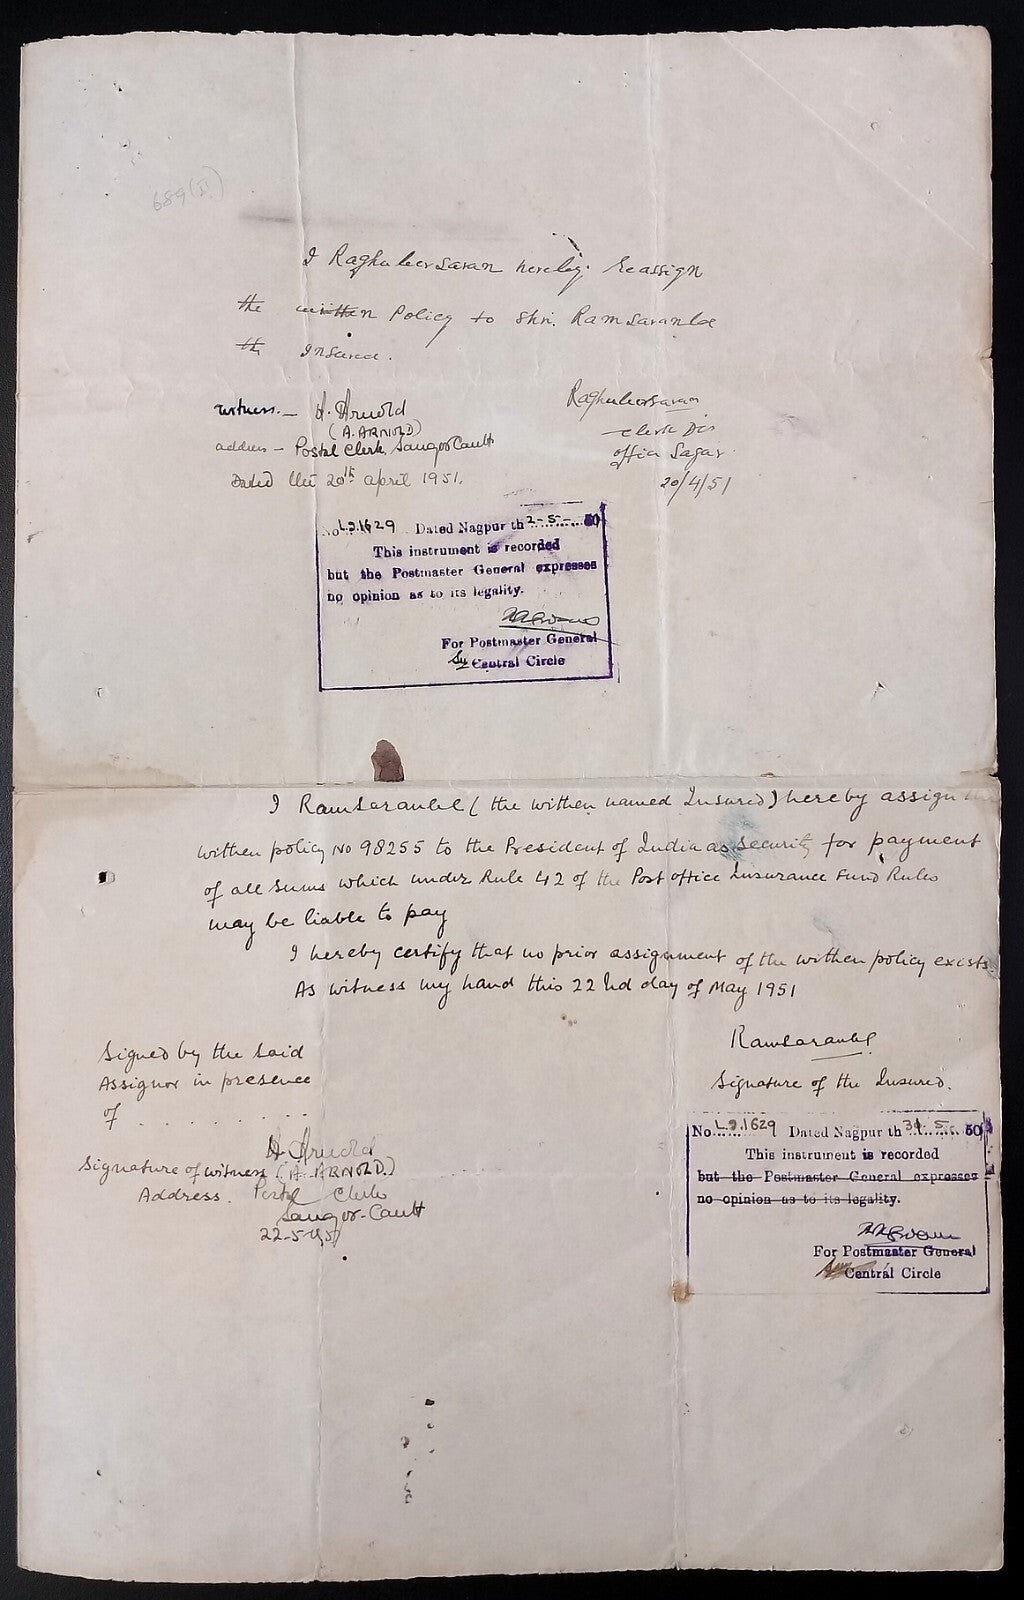 689(I)
I Raghuleersaran hereby reassign
the written Policy to Shri. Ramsaranlal
the Insured.
witness. - A. Arnold
(A. ARNOLD)
address - Postal Clerk, Saugor Cantt
Dated the 20th april 1951.
Raghuleersaran
Clerk Dis
office Sagar
20/4/51
No L.I.1629 Dated Nagpur th 2-5- 50
This instrument is recorded
but the Postmaster General expresses
no opinion as to its legality.
For Postmaster General
Central Circle
I Ramsaranlal (the withen named Insured) hereby assign
withen policy No 98255 to the President of India as security for payment
of all sums which under Rule 42 of the Post office Insurance Fund Rules
may be liable to pay
I hereby certify that no prior assignment of the withen policy exists
As witness my hand this 22nd day of May 1951
Ramsaranlal
Signature of the Insured.
Signed by the said
Assignor in presence
of . . . . . . .
A Arnold
Signature of witness (A. ARNOLD.)
Address. Postal Clerk
Saugor-Cantt
22-5-1951
No L.I.1629 Dated Nagpur th 30.5. 50
This instrument is recorded
but the Postmaster General expresses
no opinion as to its legality.
For Postmaster General
Central Circle